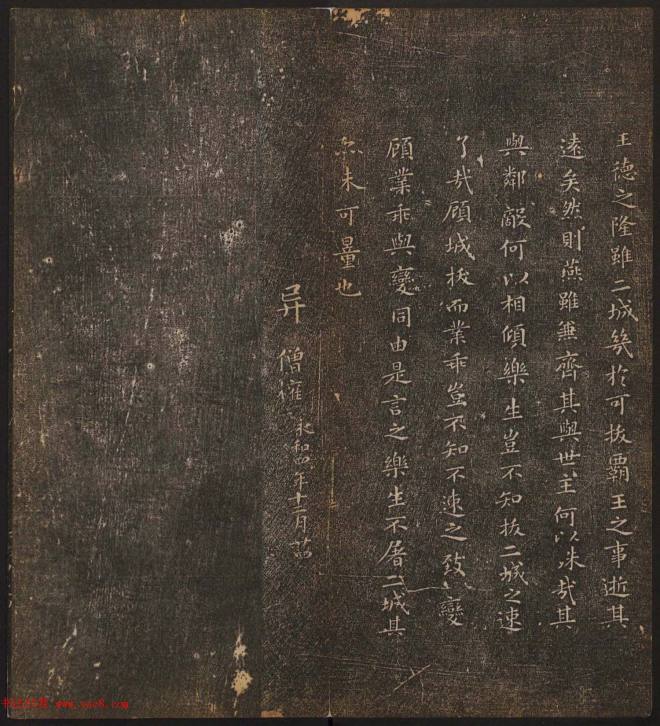 王德之隆雖二城幾於可拔霸王之事逝其
遠矣然則燕雖兼齊其與世主何以殊哉其
與鄰敵何以相傾樂生豈不知拔二城之速
了哉顧城拔而業乖豈不知不速之致變
顧業乖與變同由是言之樂生不屠二城其
亦未可量也
异 僧權 永和四年十二月
www.yac8.com